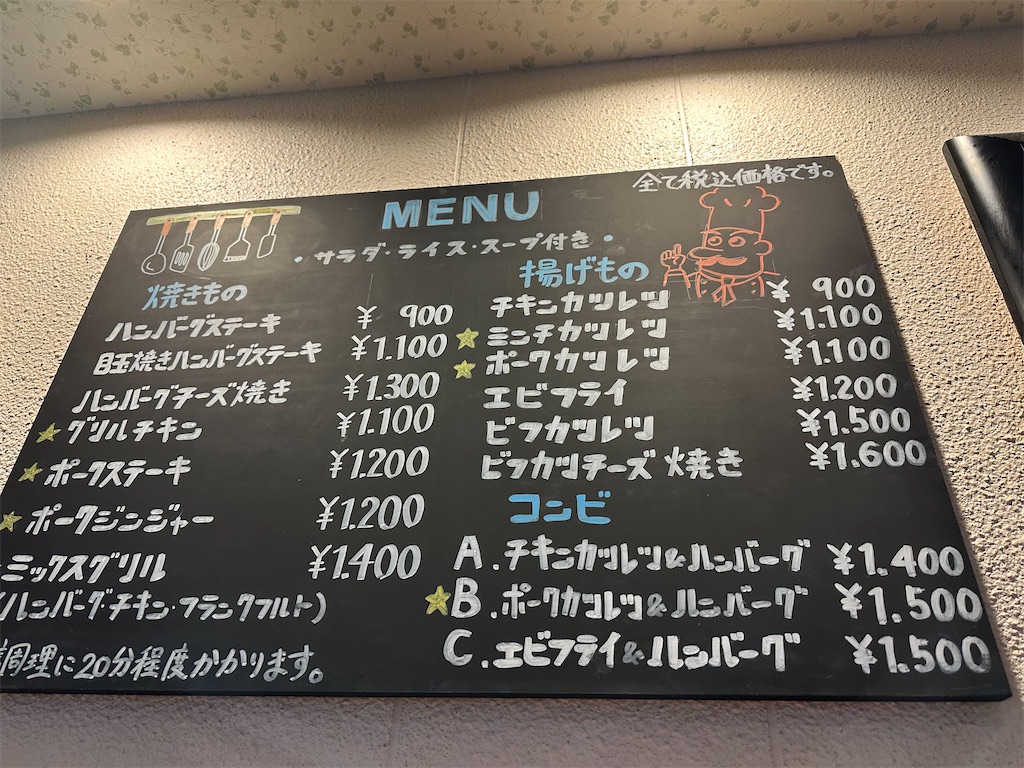 全て税込価格です。
MENU
・サラダ・ライス・スープ付き・
焼きもの
ハンバーグステーキ ¥900
目玉焼きハンバーグステーキ ¥1.100
ハンバーグチーズ焼き ¥1.300
★グリルチキン ¥1.100
★ポークステーキ ¥1.200
★ポークジンジャー ¥1.200
ミックスグリル ¥1.400
(ハンバーグ・チキン・フランクフルト)
調理に20分程度かかります。
揚げもの
チキンカツレツ ¥900
★ミンチカツレツ ¥1.100
★ポークカツレツ ¥1.100
エビフライ ¥1.200
ビフカツレツ ¥1.500
ビフカツチーズ焼き ¥1.600
コンビ
A.チキンカツレツ&ハンバーグ ¥1.400
★B.ポークカツレツ&ハンバーグ ¥1.500
C.エビフライ&ハンバーグ ¥1.500